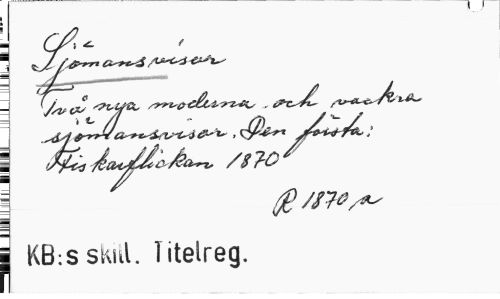 Sjömansvisor
Två nya moderna och vackra
sjömansvisor. Den första:
Fiskarflickan 1870
R 1870 a
KB:s skill. Titelreg.